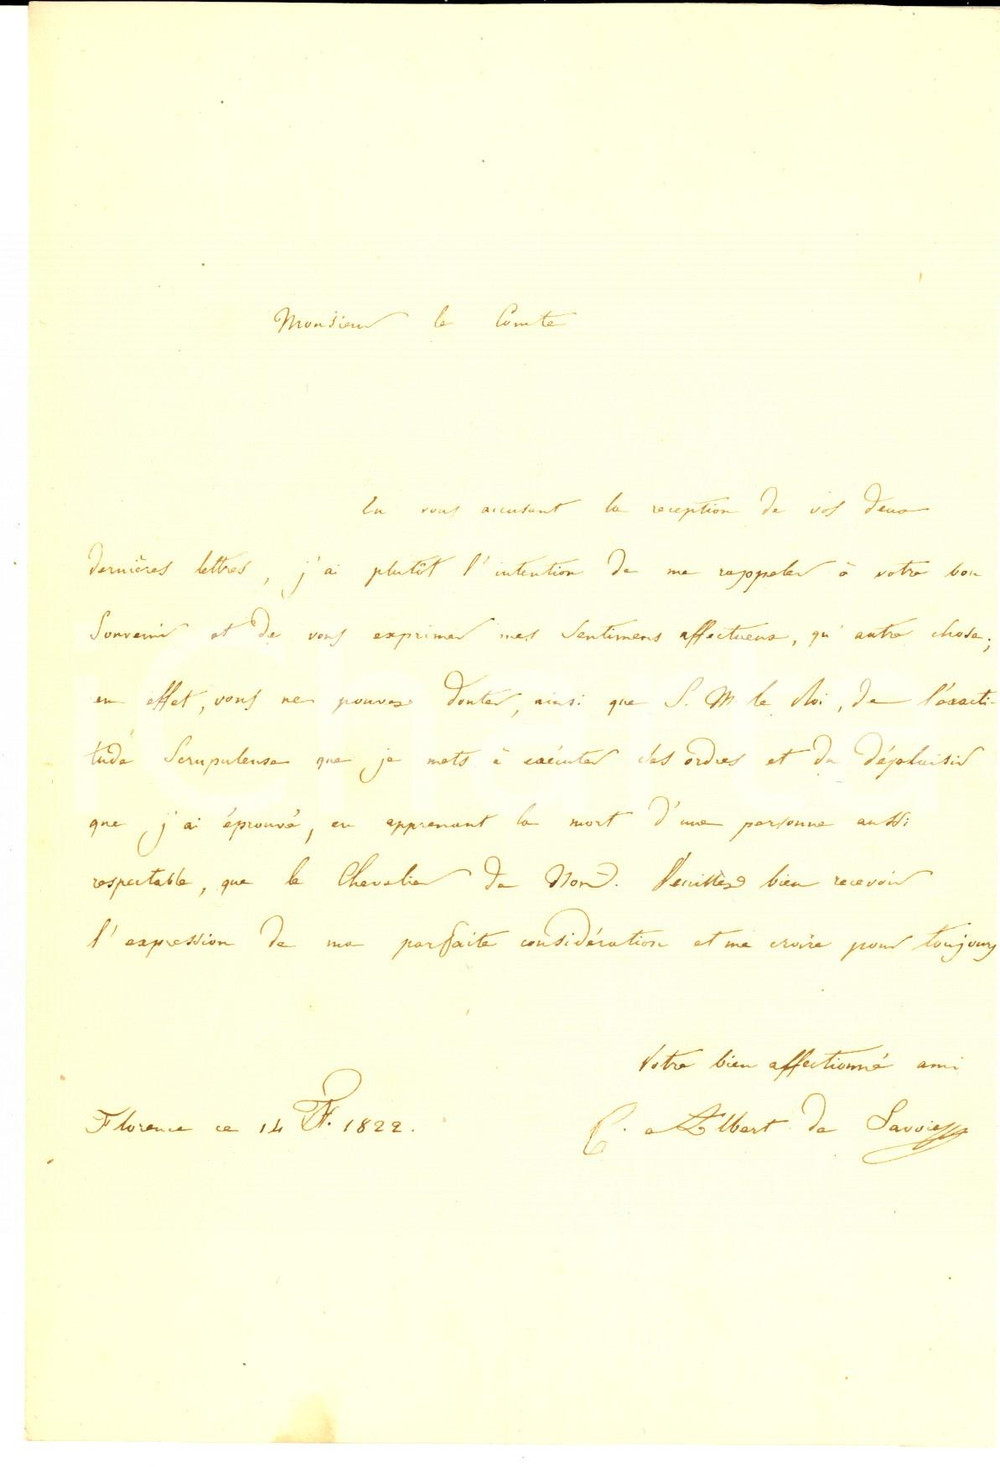 Monsieur le Comte
En vous accusant la reception de vos deux
dernières lettres, j'ai plutôt l'intention de me rappeler à votre bon
Souvenir et de vous exprimer mes Sentimens affectueux, qu'autre chose;
en effet, vous ne pouvez douter, ainsi que S. M le Roi, de l'exacti-
tude Scrupuleuse que je mets à exécuter ses ordres et du déplaisir
que j'ai éprouvé, en apprenant la mort d'une personne aussi
respectable, que le Chevalier de. Veuillez bien recevoir
l'expression de ma parfaite considération et me croire pour toujours
Votre bien affectionné ami
Florence ce 14 1822.
C. Albert de Savoie